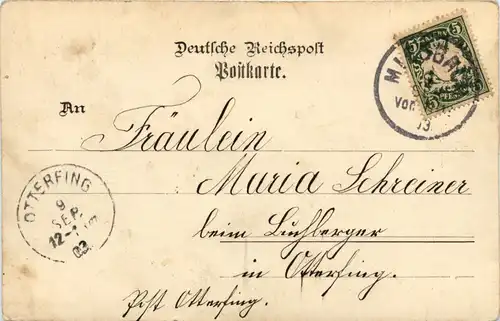 Deutsche Reichspost
Postkarte.
An
Fräulein
Maria Schreiner
beim Luchberger
in Otterfing.
Post Otterfing.
OTTERFING
9
SEP.
12-1
03
5 5
5 5